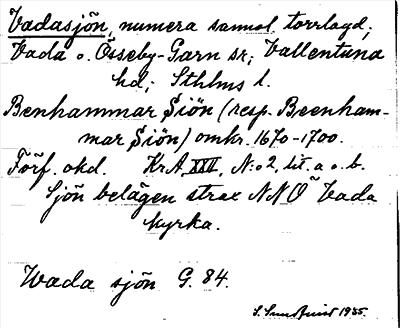 Vadasjön, numera sannol. torrlagd;
Vada o. Össeby-Garn sr; Vallentuna
hd; Sthlms l.
Benhammar Siön (resp. Beenham-
mar Siön) omkr. 1670-1700.
Förf. okd. KrA, XXII, N:o 2, lit. a o. b.
Sjön belägen strax NNO Vada
kyrka.
Wada sjön G. 84.
S. Sundquist 1935.